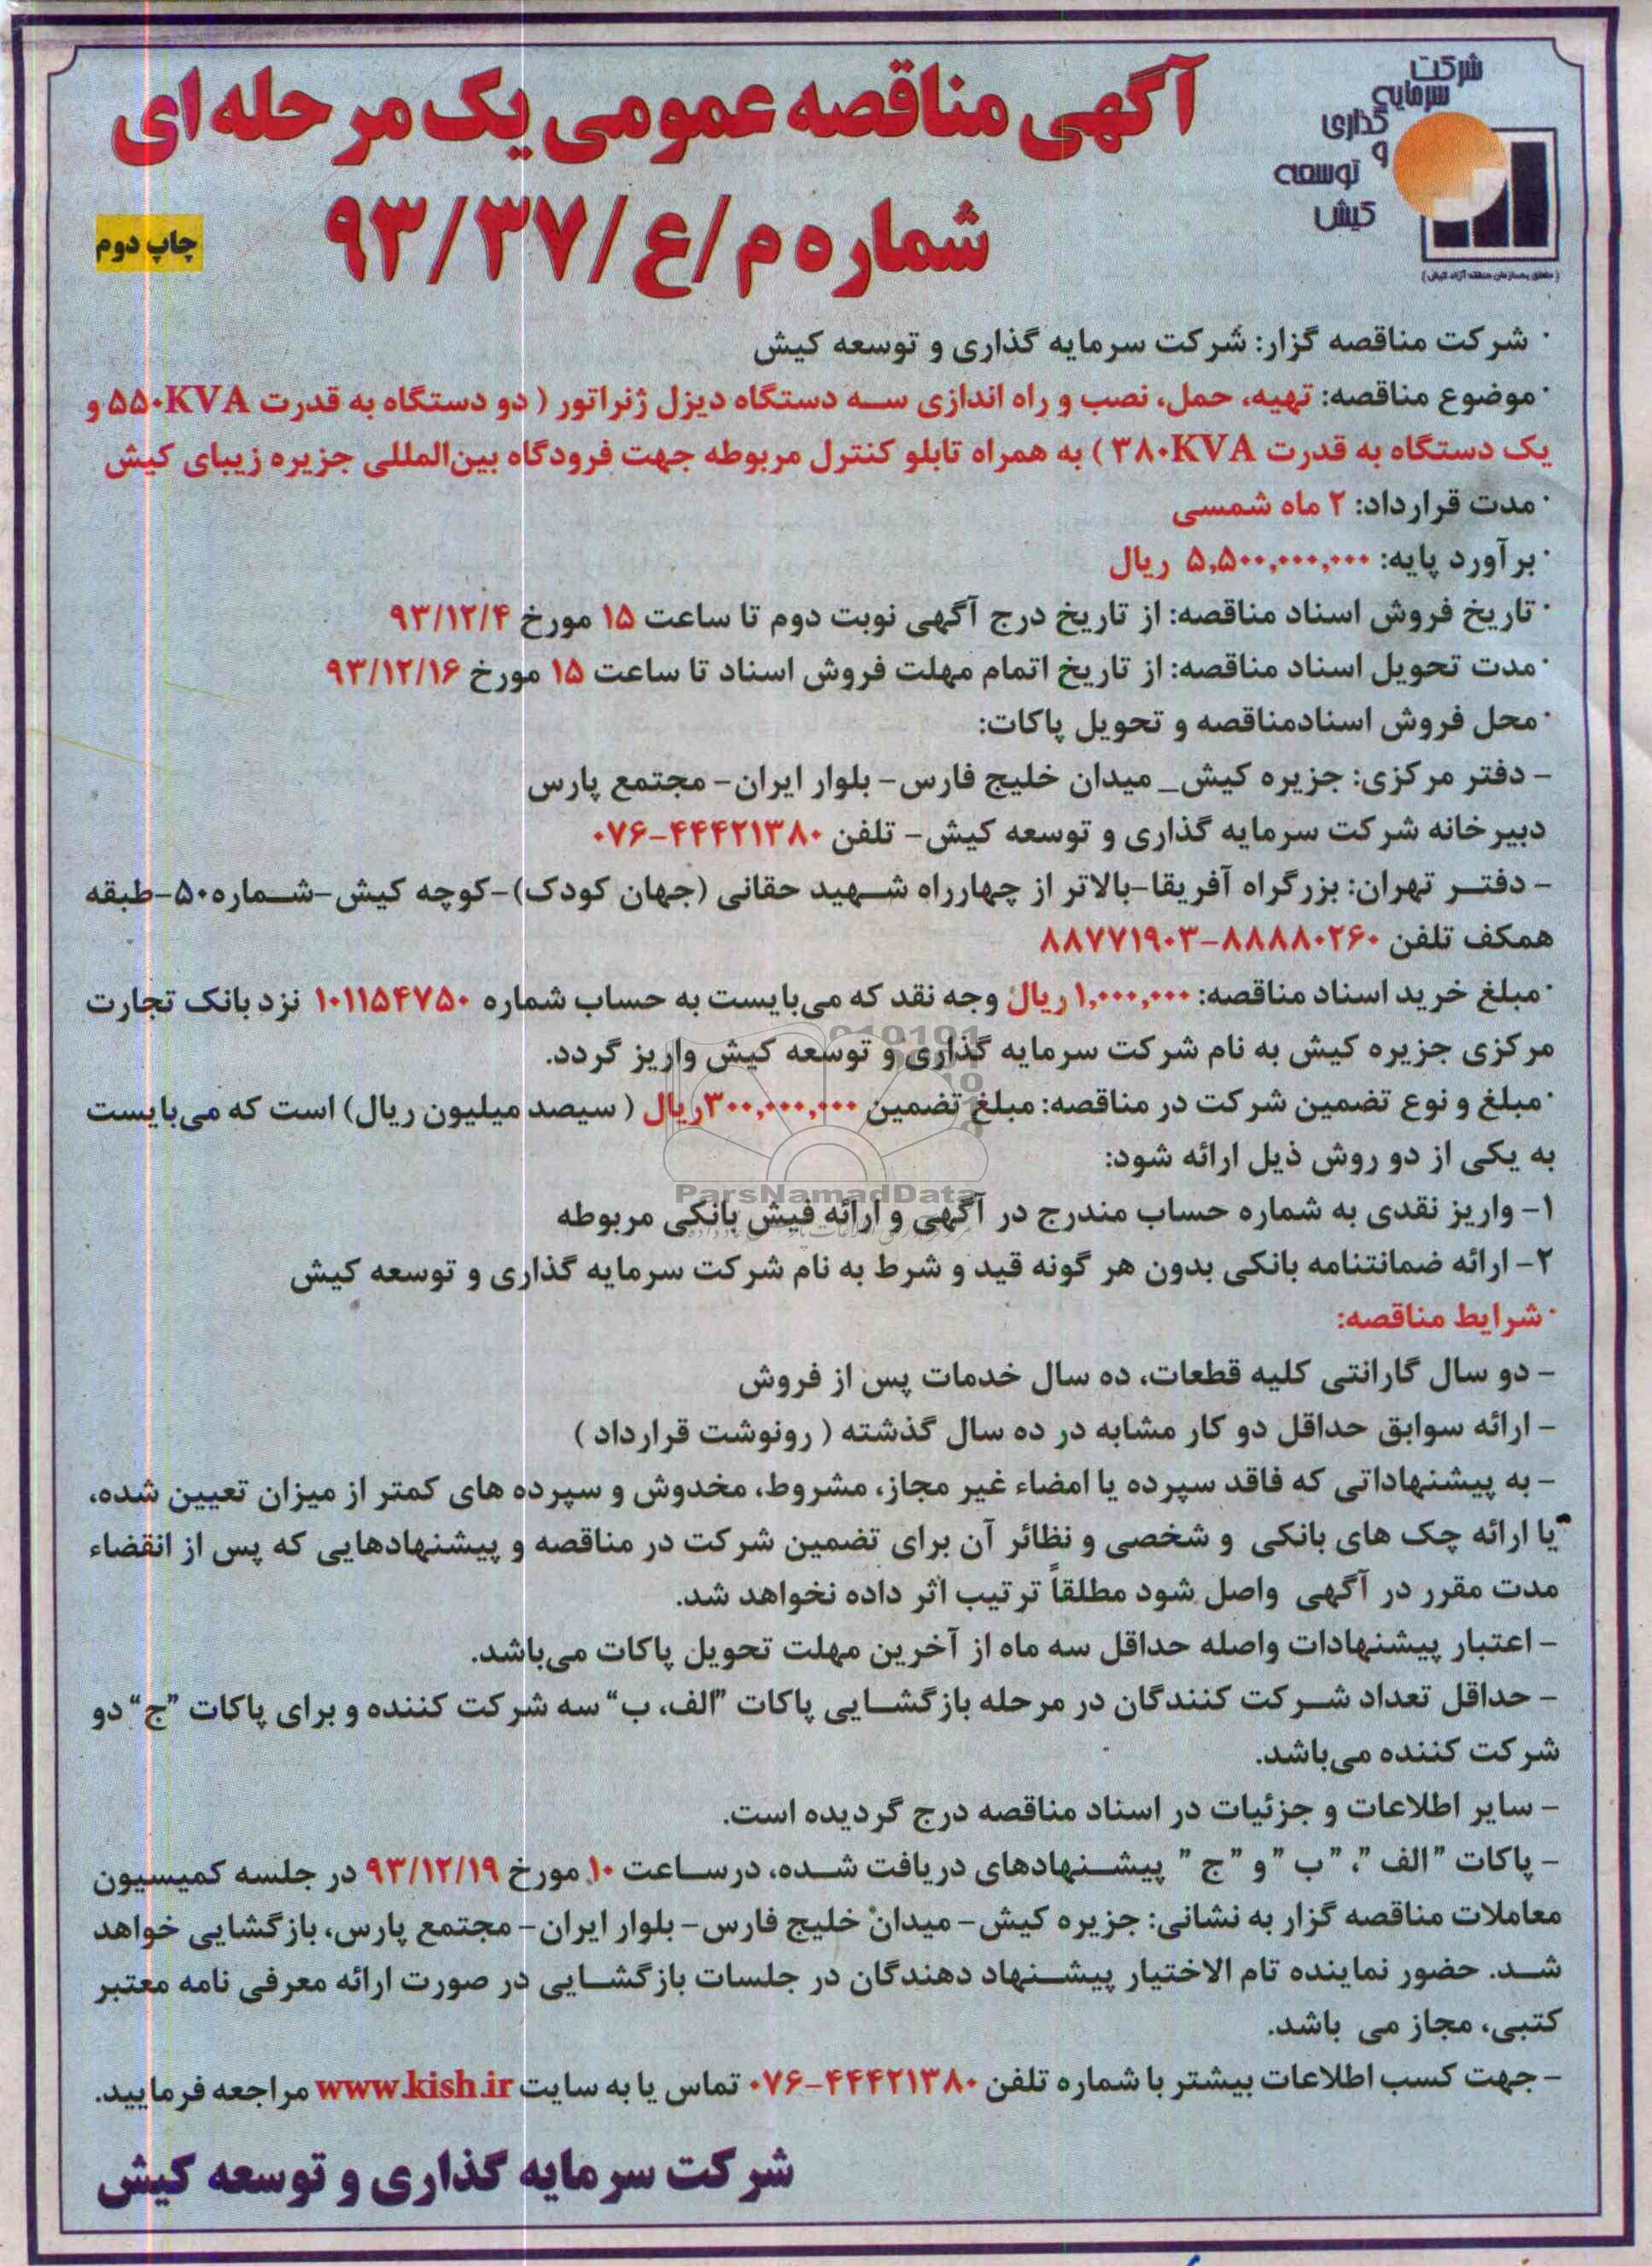 شرکت
سرمایه
گذاری
و
توسعه
کیش
(متعلق به سازمان منطقه آزاد کیش)
آگهی مناقصه عمومی یک مرحله ای
شماره م/ع/۹۳/۳۷
چاپ دوم
· شرکت مناقصه گزار: شرکت سرمایه گذاری و توسعه کیش
· موضوع مناقصه: تهیه، حمل، نصب و راه اندازی سه دستگاه دیزل ژنراتور ( دو دستگاه به قدرت ۵۵۰KVA و
یک دستگاه به قدرت ۳۸۰KVA ) به همراه تابلو کنترل مربوطه جهت فرودگاه بین‌المللی جزیره زیبای کیش
· مدت قرارداد: ۲ ماه شمسی
· برآورد پایه: ۵,۵۰۰,۰۰۰,۰۰۰ ریال
· تاریخ فروش اسناد مناقصه: از تاریخ درج آگهی نوبت دوم تا ساعت ۱۵ مورخ ۹۳/۱۲/۴
· مدت تحویل اسناد مناقصه: از تاریخ اتمام مهلت فروش اسناد تا ساعت ۱۵ مورخ ۹۳/۱۲/۱۶
· محل فروش اسنادمناقصه و تحویل پاکات:
- دفتر مرکزی: جزیره کیش_ میدان خلیج فارس- بلوار ایران- مجتمع پارس
دبیرخانه شرکت سرمایه گذاری و توسعه کیش- تلفن ۰۷۶-۴۴۴۲۱۳۸۰
- دفتر تهران: بزرگراه آفریقا-بالاتر از چهارراه شهید حقانی (جهان کودک)-کوچه کیش-شماره۵۰-طبقه
همکف تلفن ۸۸۸۸۰۲۶۰-۸۸۷۷۱۹۰۳
· مبلغ خرید اسناد مناقصه: ۱,۰۰۰,۰۰۰ ریال وجه نقد که می‌بایست به حساب شماره ۱۰۱۱۵۴۷۵۰ نزد بانک تجارت
مرکزی جزیره کیش به نام شرکت سرمایه گذاری و توسعه کیش واریز گردد.
· مبلغ و نوع تضمین شرکت در مناقصه: مبلغ تضمین ۳۰۰,۰۰۰,۰۰۰ریال ( سیصد میلیون ریال) است که می‌بایست
به یکی از دو روش ذیل ارائه شود:
ParsNamadData
۱- واریز نقدی به شماره حساب مندرج در آگهی و ارائه فیش بانکی مربوطه
۲- ارائه ضمانتنامه بانکی بدون هر گونه قید و شرط به نام شرکت سرمایه گذاری و توسعه کیش
· شرایط مناقصه:
- دو سال گارانتی کلیه قطعات، ده سال خدمات پس از فروش
- ارائه سوابق حداقل دو کار مشابه در ده سال گذشته ( رونوشت قرارداد )
- به پیشنهاداتی که فاقد سپرده یا امضاء غیر مجاز، مشروط، مخدوش و سپرده های کمتر از میزان تعیین شده،
یا ارائه چک های بانکی و شخصی و نظائر آن برای تضمین شرکت در مناقصه و پیشنهادهایی که پس از انقضاء
مدت مقرر در آگهی واصل شود مطلقاً ترتیب اثر داده نخواهد شد.
- اعتبار پیشنهادات واصله حداقل سه ماه از آخرین مهلت تحویل پاکات می‌باشد.
- حداقل تعداد شرکت کنندگان در مرحله بازگشایی پاکات "الف، ب" سه شرکت کننده و برای پاکات "ج" دو
شرکت کننده می‌باشد.
- سایر اطلاعات و جزئیات در اسناد مناقصه درج گردیده است.
- پاکات "الف"، "ب" و "ج" پیشنهادهای دریافت شده، درساعت ۱۰ مورخ ۹۳/۱۲/۱۹ در جلسه کمیسیون
معاملات مناقصه گزار به نشانی: جزیره کیش- میدان خلیج فارس- بلوار ایران- مجتمع پارس، بازگشایی خواهد
شد. حضور نماینده تام الاختیار پیشنهاد دهندگان در جلسات بازگشایی در صورت ارائه معرفی نامه معتبر
کتبی، مجاز می باشد.
- جهت کسب اطلاعات بیشتر با شماره تلفن ۰۷۶-۴۴۴۲۱۳۸۰ تماس یا به سایت www.kish.ir مراجعه فرمایید.
شرکت سرمایه گذاری و توسعه کیش